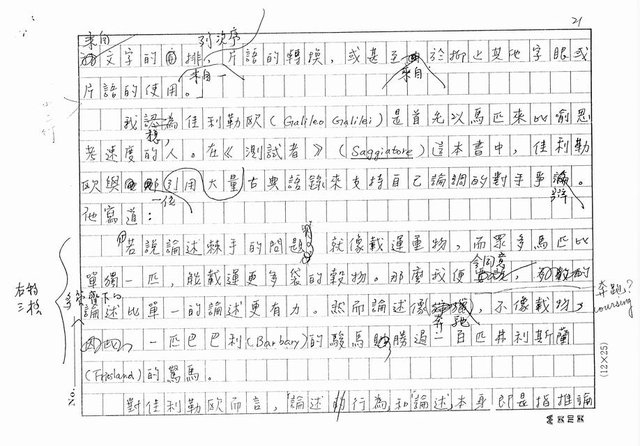 21
來自 列次序
文字的排，片語的轉換，或甚至於抑止其他字眼或
來自一 來自
片語的使用。」
我認為佳利勒歐（Galileo Galilei）是首先以馬匹來比喻思
想，
考速度的人。在《測試者》（Saggiatore）這本書中，佳利勒
歐與引用大量古典語錄來支持自己論綱的對手爭論。
一位 辯
他寫道：
若說論述棘手的問題 就像載運重物，而眾多馬匹比
單獨一匹，能載運更多袋的穀物。那麼我便會同意，
右翻 三格
論述比單一的論述更有力。然而論述像，不像載物，
奔馳
奔跑？
coursing
一匹巴巴利（Barbary）的駿馬勝過一百匹弗利斯蘭
（Friesland）的駑馬。
(12×25)
No.
對佳利勒歐而言，「論述」的行為和「論述」本身，即是指推論